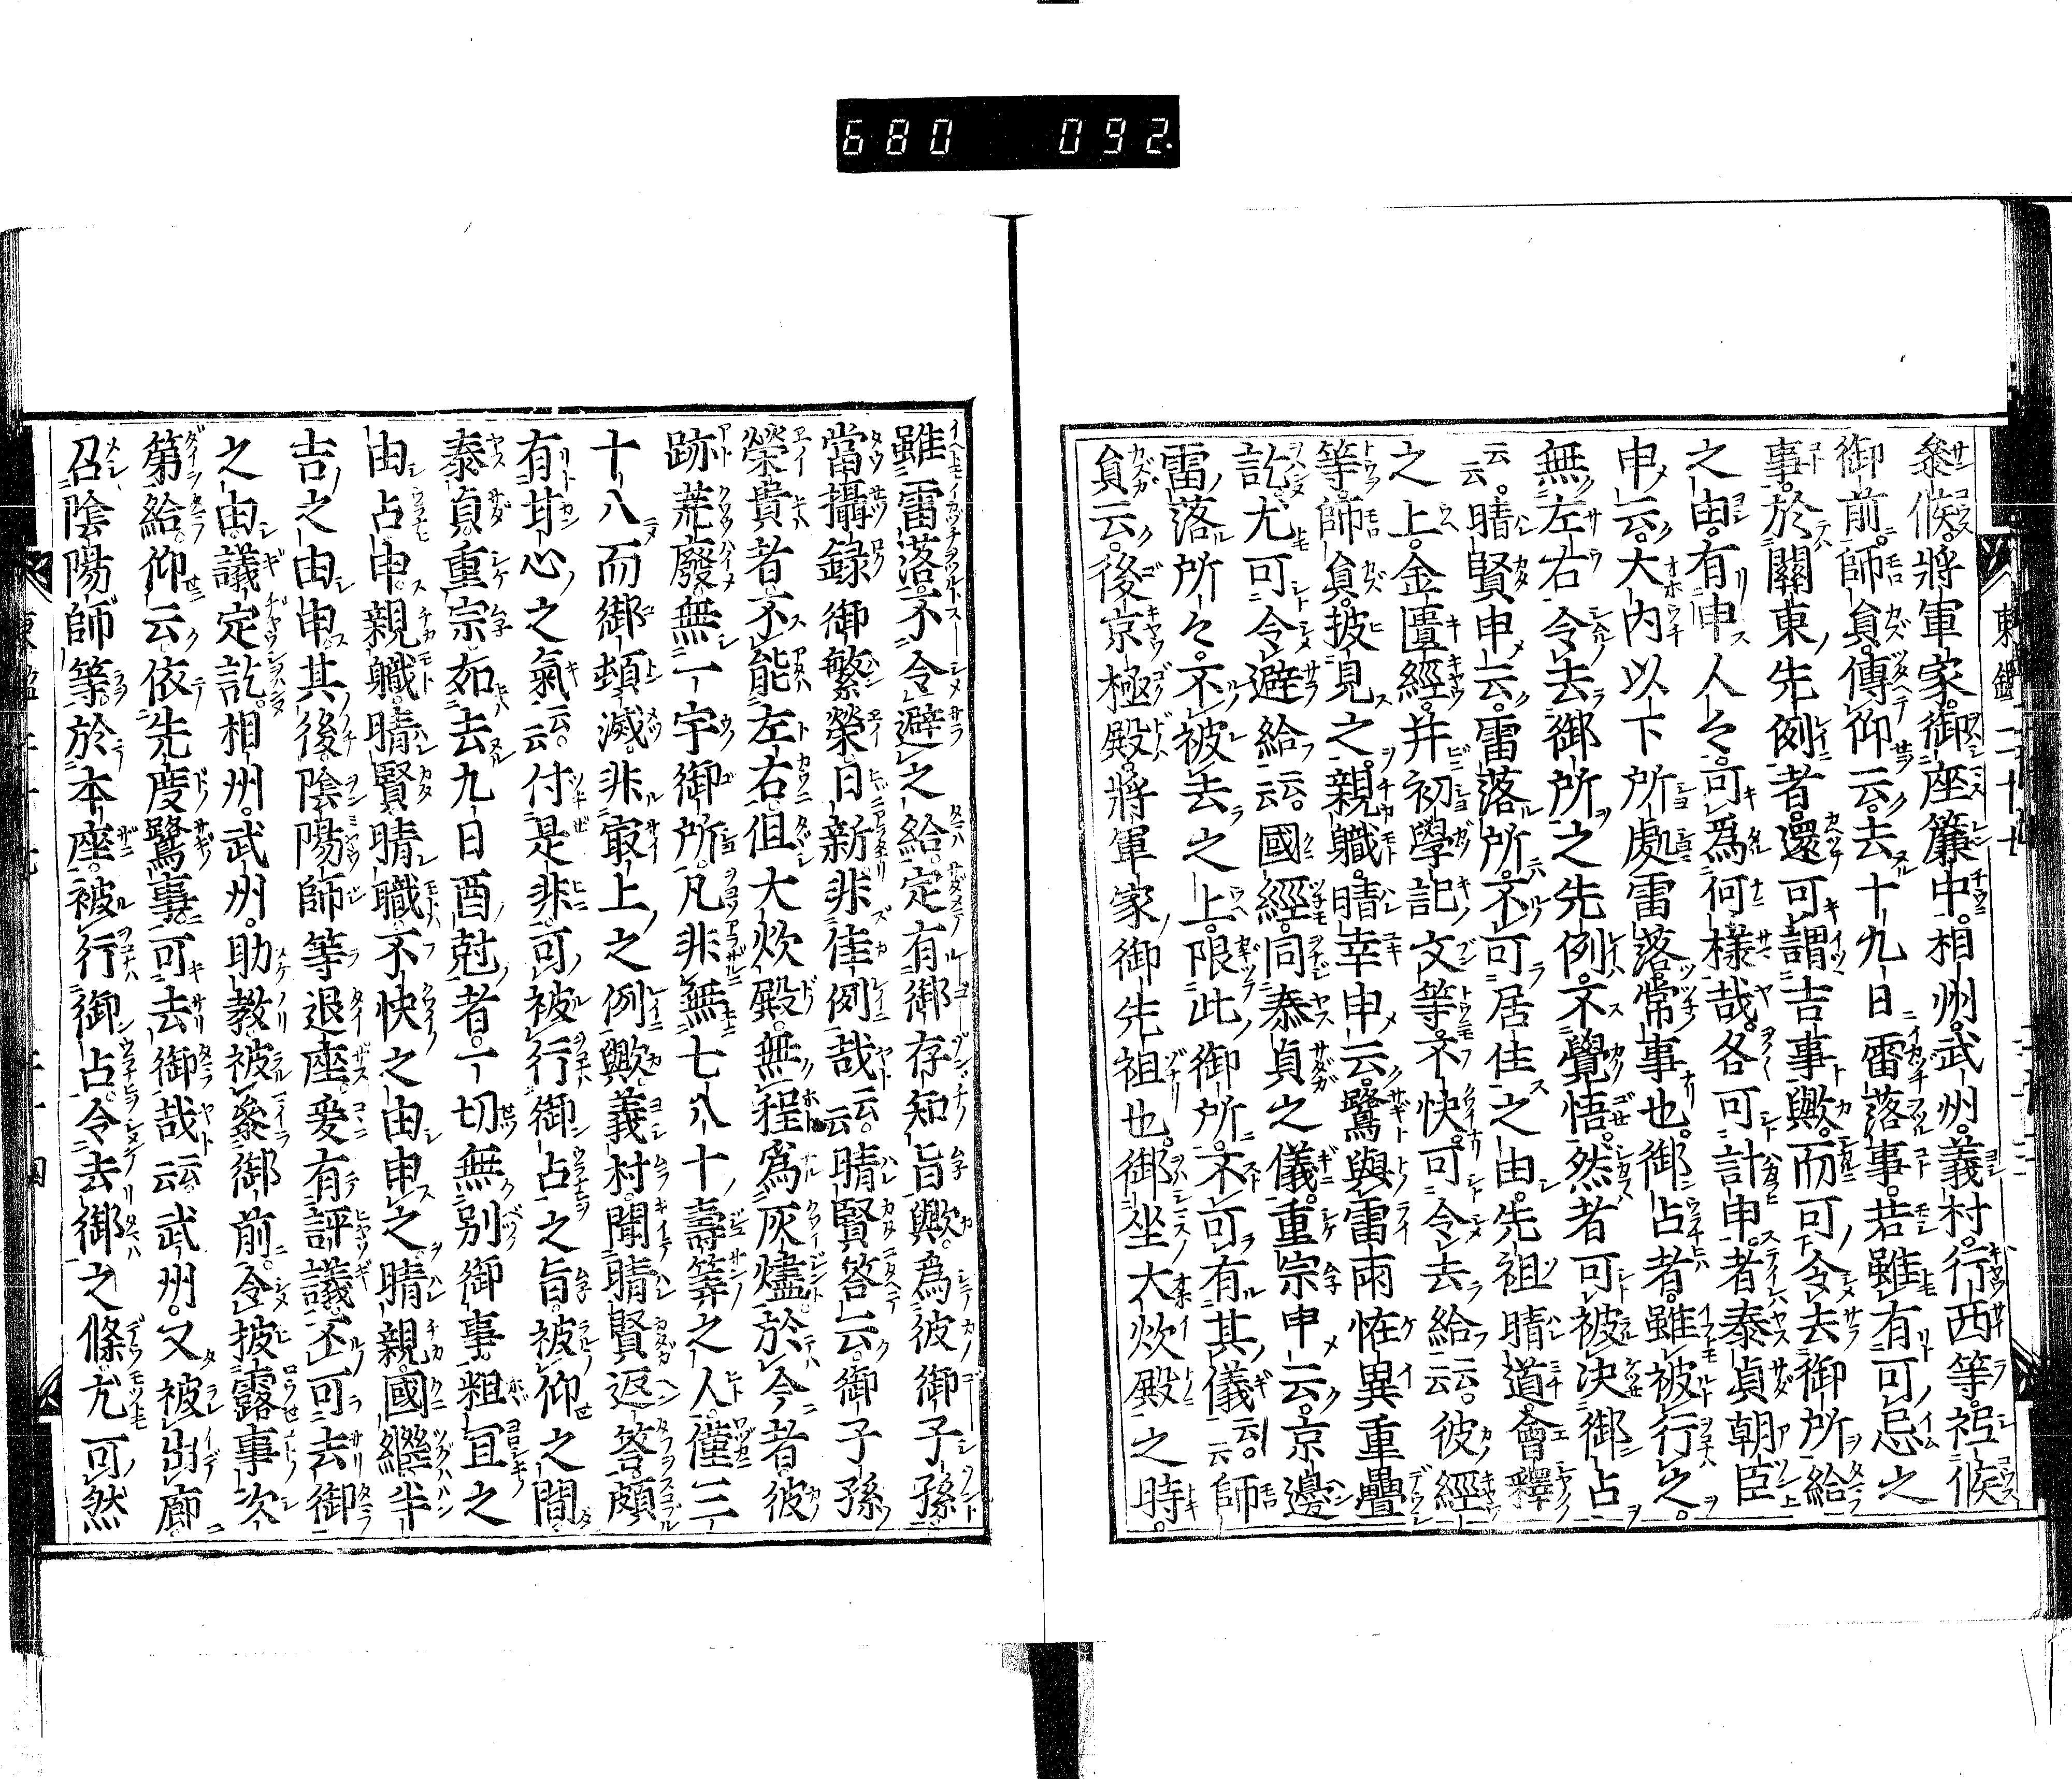 680 092
參候。將軍家。御座簾中。相州。武州。義村。行西等。祗候
御前。師員。傳仰云。去十九日雷落事。若雖有可忌之
事。於關東先例者。還可謂吉事歟。而可令去御所給
之由。有申人々。可爲何樣哉。各可計申者。泰貞朝臣
申云。大内以下所處雷落常事也。御占者。雖被行之。
無左右令去御所之先例。不覺悟。然者可被決御占
云云。晴賢申云。雷落所。不可居住之由。先祖晴道。會釋
之上。金匱經。幷初學記文等。不快。可令去給云云。彼經
等。師員。披見之。親職。晴幸申云。鷺與雷雨恠異重疊
訖。尤可令避給云云。國經。同泰貞之儀。重宗申云。京邊
雷落所々。不被去之上。限此御所。不可有其儀云云。師
員云。後京極殿。將軍家御先祖也。御坐大炊殿之時。
雖雷落不令避之給。定有御存知旨歟。爲彼御子孫。
當攝録御繁榮。日新非佳例哉云云。晴賢答云。御子孫
榮貴者。不能左右。但大炊殿。無程爲灰燼。於今者彼
跡荒廢。無一宇御所。凡非無七八十壽筭之人。僅三
十八而御頓滅。非㝡上之例歟。義村。聞晴賢返答。頗
有甘心之氣云云。付是非。可被行御占之旨。被仰之間。
泰貞。重宗。如去九日酉尅者。一切無別御事。粗宜之
由占申。親職。晴賢。晴職。不快之由申之。晴親。國繼半
吉之由申。其後陰陽師等退座。爰有評議。不可去御
之由。議定訖。相州。武州。助教。被參御前。令披露事次
第給。仰云。依先度鷺事。可去御哉云云。武州。又被出廊。
召陰陽師等。於本座。被行御占。令去御之條。尤可然